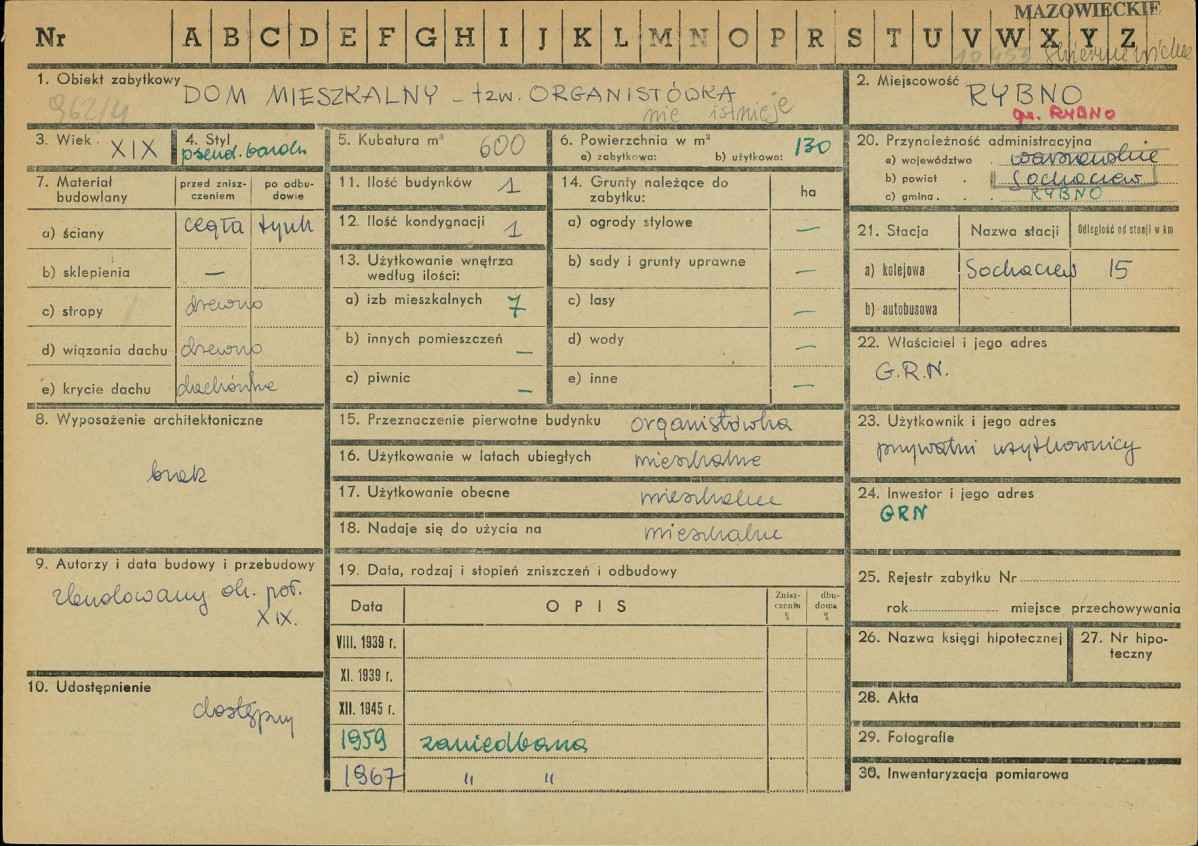 MAZOWIECKIE
Nr A B C D E F G H I J K L M N O P R S T U V W X Y Z
10453 Skierniewickie
1. Obiekt zabytkowy DOM MIESZKALNY - tzw. ORGANISTÓWKA
962/4 nie istnieje
2. Miejscowość RYBNO
gm. RYBNO
3. Wiek XIX
4. Styl pseud. barok
5. Kubatura m³ 600
6. Powierzchnia w m²
a) zabytkowa: b) użytkowa: 130
7. Materiał budowlany
przed zniszczeniem po odbudowie
a) ściany cegła tynk
b) sklepienia —
c) stropy drewno
d) wiązania dachu drewno
e) krycie dachu dachówka
8. Wyposażenie architektoniczne
brak
9. Autorzy i data budowy i przebudowy
zbudowany ok. poł.
XIX.
10. Udostępnienie
dostępny
11. Ilość budynków 1
12. Ilość kondygnacji 1
13. Użytkowanie wnętrza
według ilości:
a) izb mieszkalnych 7
b) innych pomieszczeń —
c) piwnic —
14. Grunty należące do
zabytku: ha
a) ogrody stylowe —
b) sady i grunty uprawne —
c) lasy —
d) wody —
e) inne —
15. Przeznaczenie pierwotne budynku organistówka
16. Użytkowanie w latach ubiegłych mieszkalne
17. Użytkowanie obecne mieszkalne
18. Nadaje się do użycia na mieszkalne
19. Data, rodzaj i stopień zniszczeń i odbudowy
Data OPIS Zniszczeniu % dbudowa %
VIII. 1939 r.
XI. 1939 r.
XII. 1945 r.
1959 zaniedbana
1967 " "
20. Przynależność administracyjna
a) województwo . warszawskie
b) powiat . . Sochaczew
c) gmina . . . RYBNO
21. Stacja Nazwa stacji Odległość od stacji w km
a) kolejowa Sochaczew 15
b) autobusowa
22. Właściciel i jego adres
G.R.N.
23. Użytkownik i jego adres
prywatni użytkownicy
24. Inwestor i jego adres
GRN
25. Rejestr zabytku Nr
rok miejsce przechowywania
26. Nazwa księgi hipotecznej
27. Nr hipoteczny
28. Akta
29. Fotografie
30. Inwentaryzacja pomiarowa